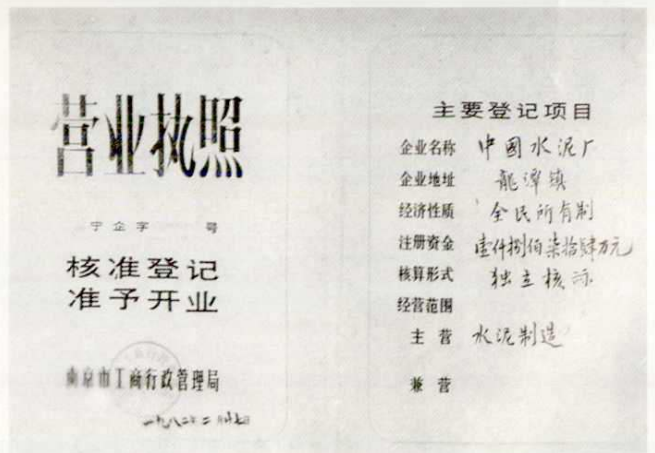 营业执照
宁企字 号
核准登记
准予开业
南京市工商行政管理局
一九八二年二月廿七日
主要登记项目
企业名称 中國水泥厂
企业地址 龍潭镇
经济性质 全民所有制
注册资金 壹仟捌佰柒拾肆万元
核算形式 独立核祘
经营范围
主营 水泥制造
兼营